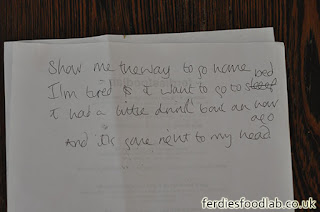 Show me the way to go home
I'm tired & I want to go to bed
I had a little drink 'bout an hour ago
And it's gone right to my head
ferdiesfoodlab.co.uk